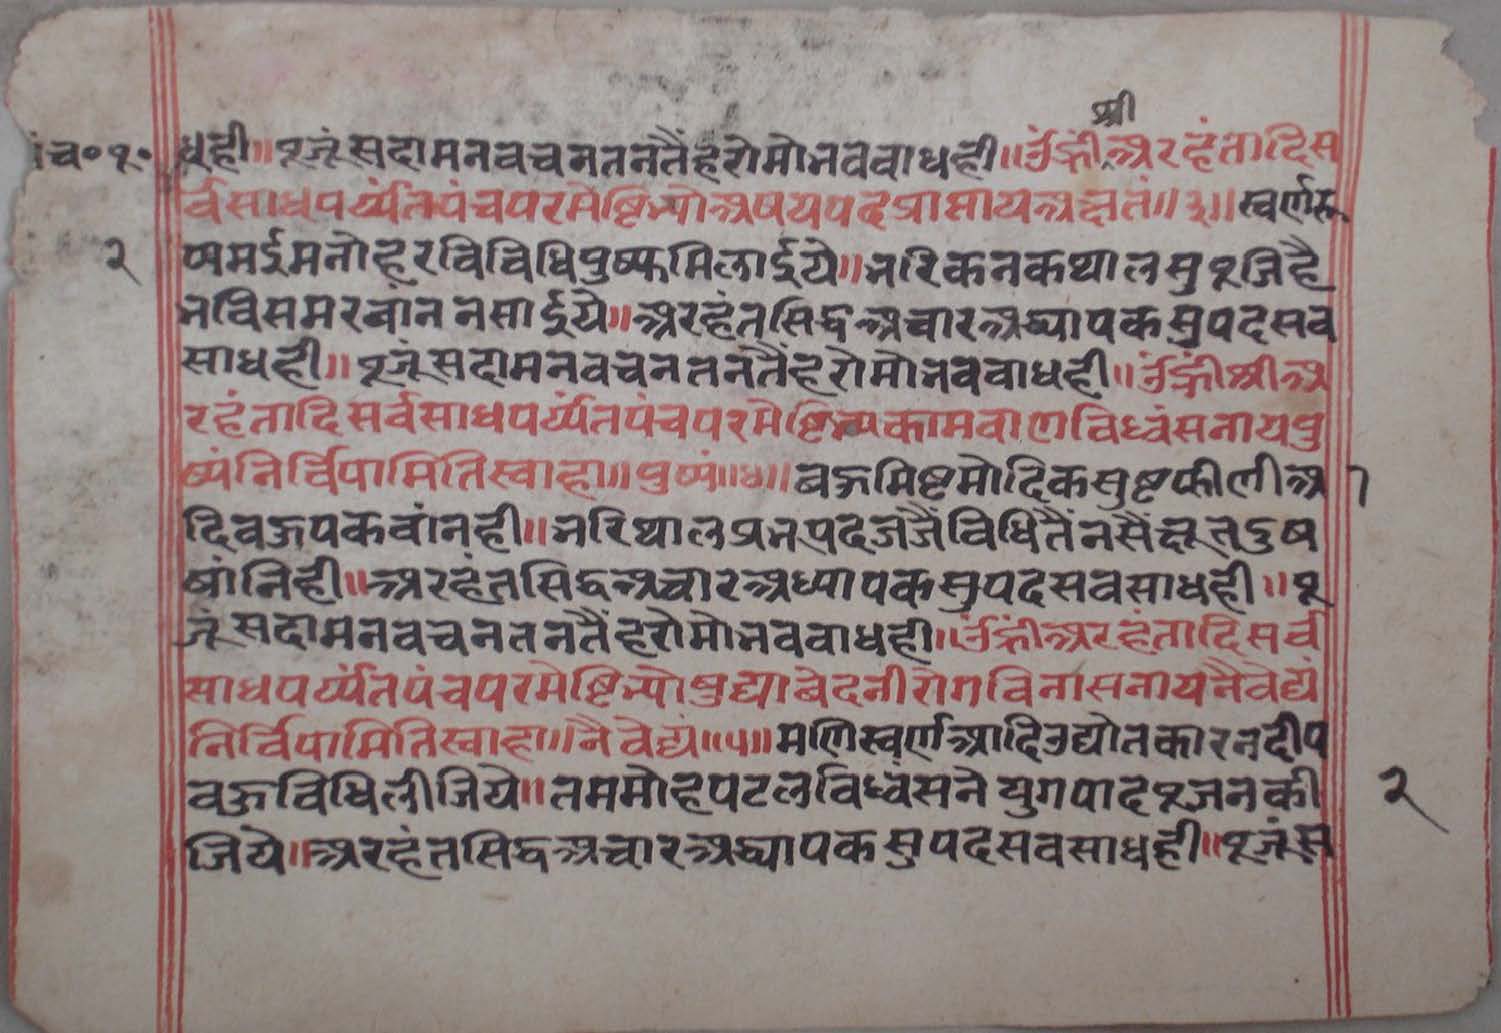 श्री
पंच० पू० धूही॥ पूजूं सदा मन वच न तन तैं हरो मो भव वाधही॥ ॐ ह्रीं अरहंतादि स
र्वसाधपर्य्यंत पंचपरमेष्टिभ्यो अषयपदप्राप्ताय अक्षतं॥३॥ स्वर्णरू
२ प्यमई मनोहर विविधि पुष्प मिलाईये॥ भरि कनक थाल सु पूजि है
भवि समर वांन नसाईये॥ अरहंत सिद्ध अचार अध्यापक सुपद सव
साधही॥ पूजूं सदा मन वचन तन तैं हरो मो भव वाधही॥ ॐ ह्रीं श्री अ
रहंतादि सर्वसाधपर्य्यंत पंचपरमेष्टिभ्य कामवाणविध्वंसनाय पु
ष्पं निर्विपामिति स्वाहा॥ पुष्पं॥४॥ बऊ मिष्ट मोदिक सुष्ट फीली आ
दि वऊ पकवांनही॥ भरि थाल प्रभ पद जजैं विधि तैं नसैं क्षूत दुष
षांनिही॥ अरहंत सिद्ध अचार अध्यापक सुपद सव साधही॥ पू
जूं सदा मन वचन तन तैं हरो मो भव वाधही॥ ॐ ह्रीं अरहंतादि सर्व
साधपर्य्यंत पंचपरमेष्टिभ्यो षुद्याबेदनीरोगविनासनाय नैवेद्यं
निर्विपामिति स्वाहा॥ नैवेद्यं॥५॥ मणि स्वर्ण आदि उद्योत कारन दीप
वऊ विधि लीजिये॥ तम मोह पटल विध्वंसने युग पाद पूजन की २
जिये॥ अरहंत सिद्ध अचार अध्यापक सुपद सव साधही॥ पूजूं स